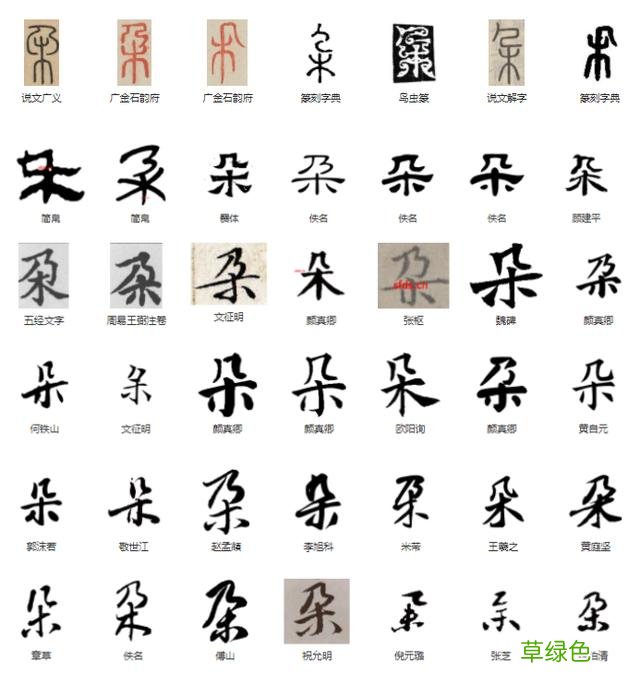 朵 朵 朵 朵 朵 朵 朵
说文广义 广金石韵府 广金石韵府 篆刻字典 鸟虫篆 说文解字 篆刻字典
朵 朵 朵 朵 朵 朵 朵
简帛 简帛 佚名 佚名 佚名 顾建平
朵 朵 朵 朵 朵 朵 朵
sfds.cn
五经文字 周易王弼注卷 文征明 颜真卿 张枢 魏碑 颜真卿
朵 朵 朵 朵 朵 朵 朵
何铁山 文征明 颜真卿 颜真卿 欧阳询 颜真卿 黄自元
朵 朵 朵 朵 朵 朵 朵
郭沫若 敬世江 赵孟頫 李旭科 米芾 王羲之 黄庭坚
朵 朵 朵 朵 朵 朵 朵
章草 佚名 傅山 祝允明 倪元璐 张芝 清
草绿色